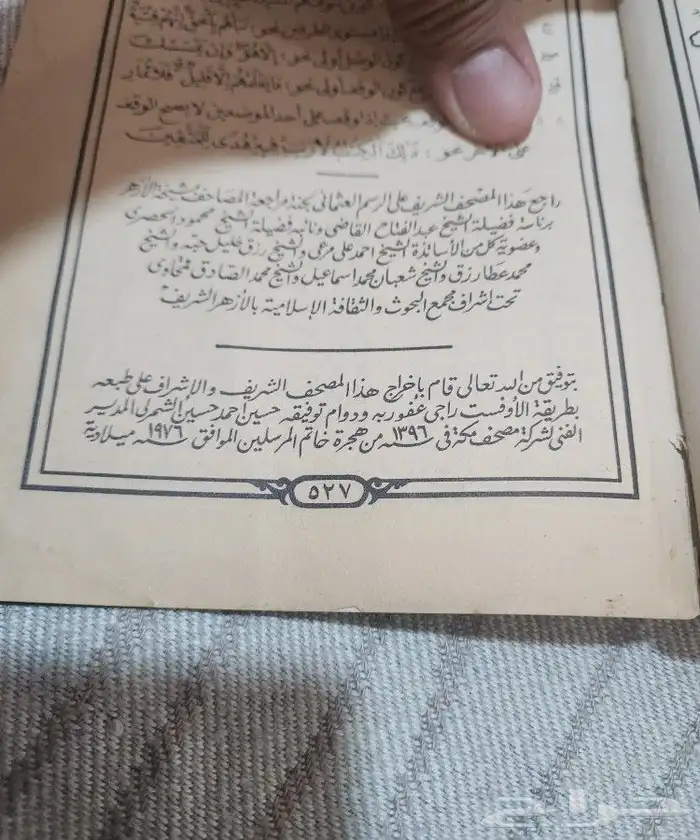 كون الوصل أولى نحو: إلا هو وإن يمسسك
كون الوقف أولى نحو: ما يعلمهم إلا قليل فلا تمار
بحيث إذا وقف على أحد الموضعين لا يصح الوقف
على الآخر نحو: ذَٰلِكَ ٱلْكِتَٰبُ لَا رَيْبَ فِيهِ هُدًى لِّلْمُتَّقِينَ
راجع هذا المصحف الشريف على الرسم العثماني لجنة مراجعة المصاحف بمشيخة الأزهر
برئاسة فضيلة الشيخ عبد الفتاح القاضي ونائبه فضيلة الشيخ محمود الحصري
وعضوية كل من الأساتذة الشيخ أحمد علي مرعي والشيخ رزق خليل حبه والشيخ
محمد عطا رزق والشيخ شعبان محمد اسماعيل والشيخ محمد الصادق قمحاوى
تحت إشراف مجمع البحوث والثقافة الإسلامية بالأزهر الشريف
بتوفيق من الله تعالى قام بإخراج هذا المصحف الشريف والإشراف على طبعه
بطريقة الأوفست راجى عفو ربه ودوام توفيقه حسين احمد حسين الشمرلى المدير
الفنى لشركة مصحف مكة فى سنة ١٣٩٦ من هجرة خاتم المرسلين الموافق سنة ١٩٧٦ ميلادية
٥٢٧
حراج